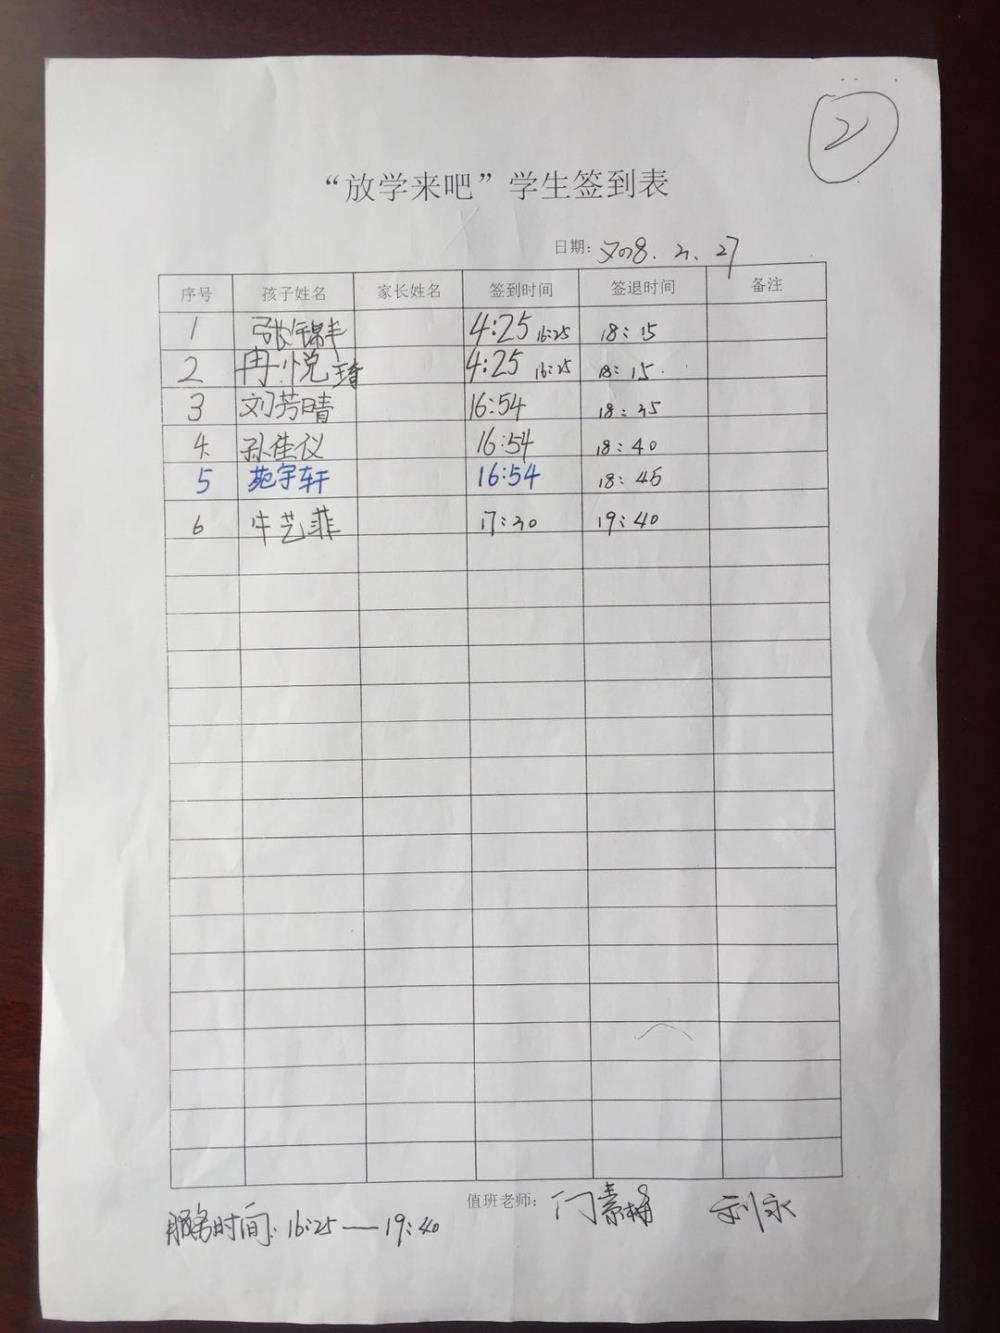 2
“放学来吧”学生签到表
日期: 2018.2.27
序号 孩子姓名 家长姓名 签到时间 签退时间 备注
1 张锦丰 4:25 16:25 18:15
2 冉悦琦 4:25 16:25 18:15.
3 刘芳晴 16:54 18:35
4 孙佳仪 16:54 18:40
5 苑宇轩 16:54 18:45
6 牛艺菲 17:30 19:40
值班老师: 门素梅
服务时间: 16:25——19:40